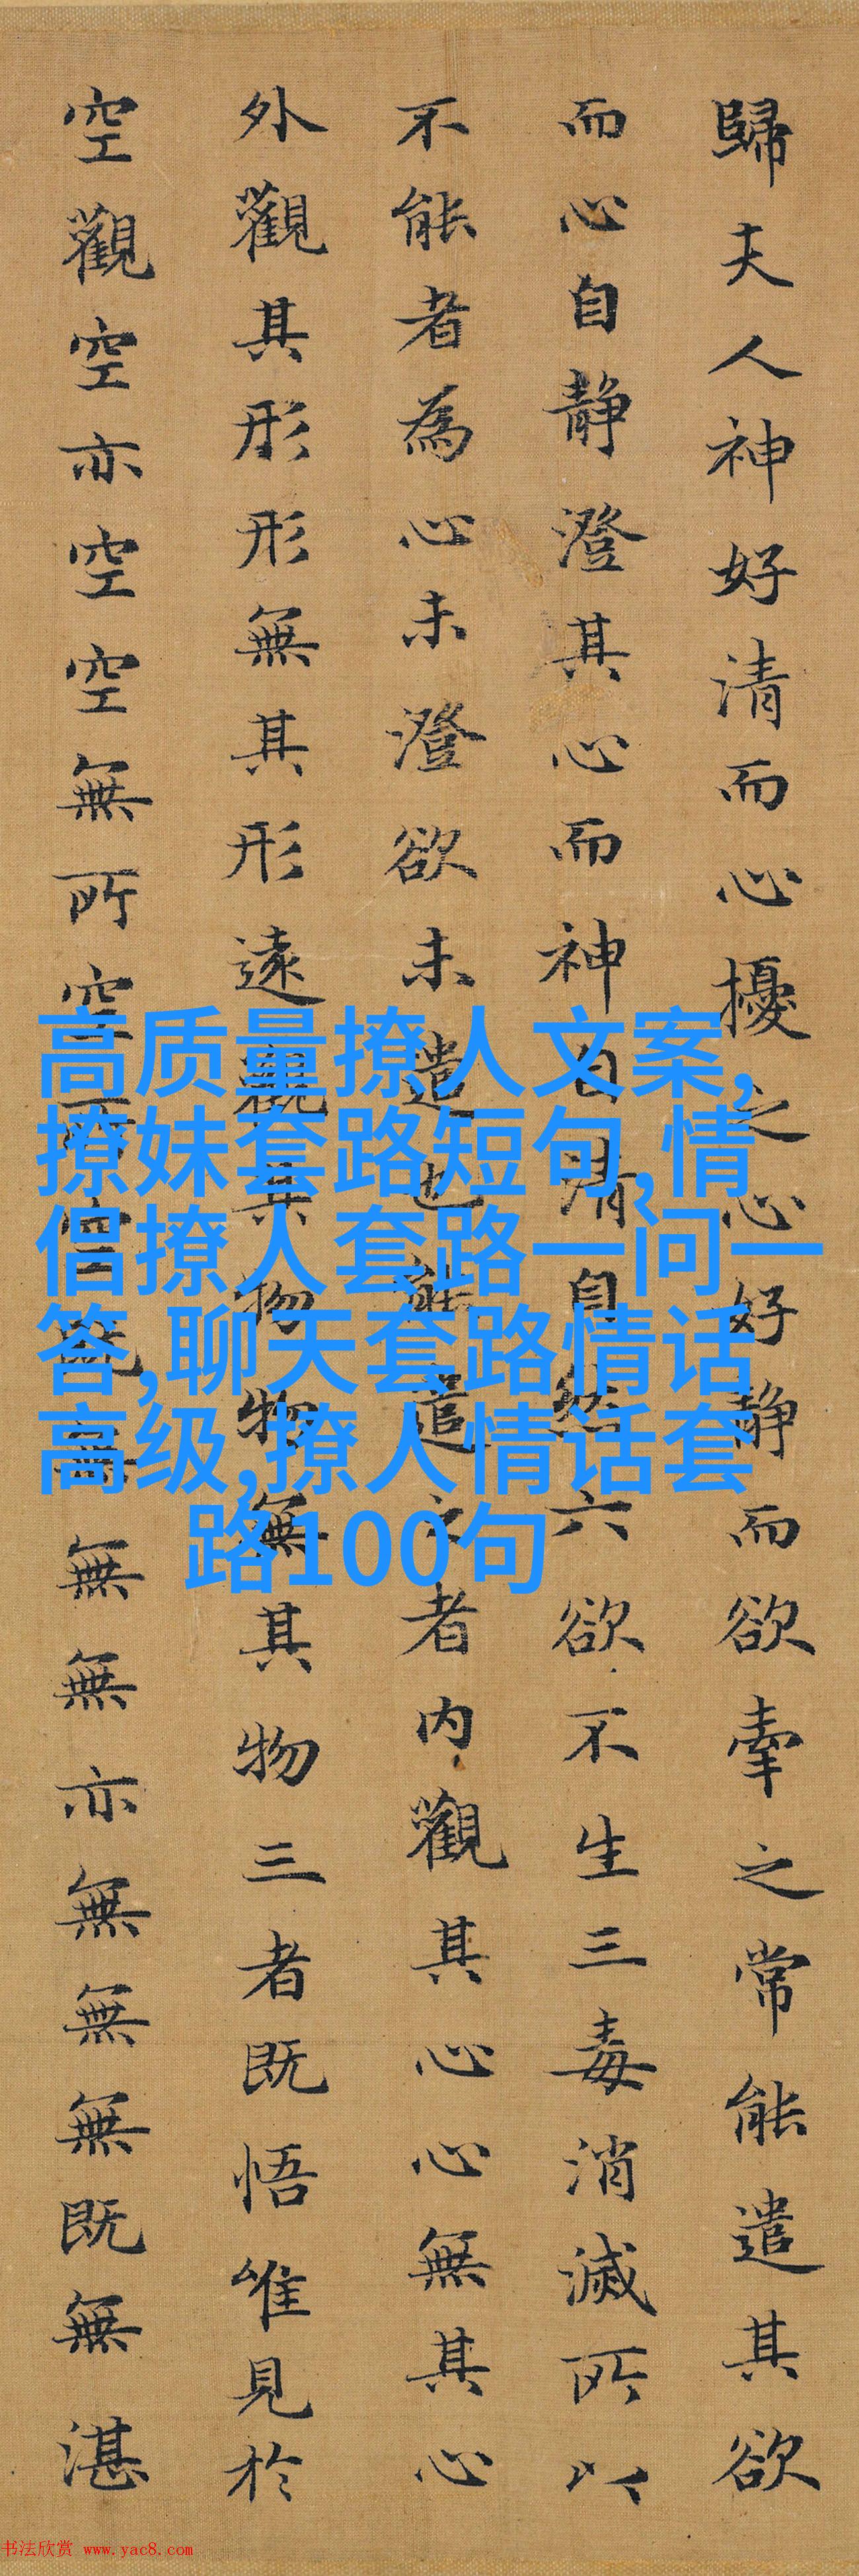 歸夫人神好清而心擾之心好静而欲牽之常能遣其欲
而心自静澄其心而神自清自然六欲不生三毒消滅所以
不能者為心未澄欲未遣也能遣之者内觀其心心無其心
外觀其形形無其形遠觀其物物無其物三者既悟唯見於
空觀空亦空空無所空所空既無無無亦無無無既無湛
高质量撩人文案,
撩妹套路短句,情
侣撩人套路一问一
答,聊天套路情话
高级,撩人情话套
路100句
书法欣赏 www.yac8.com